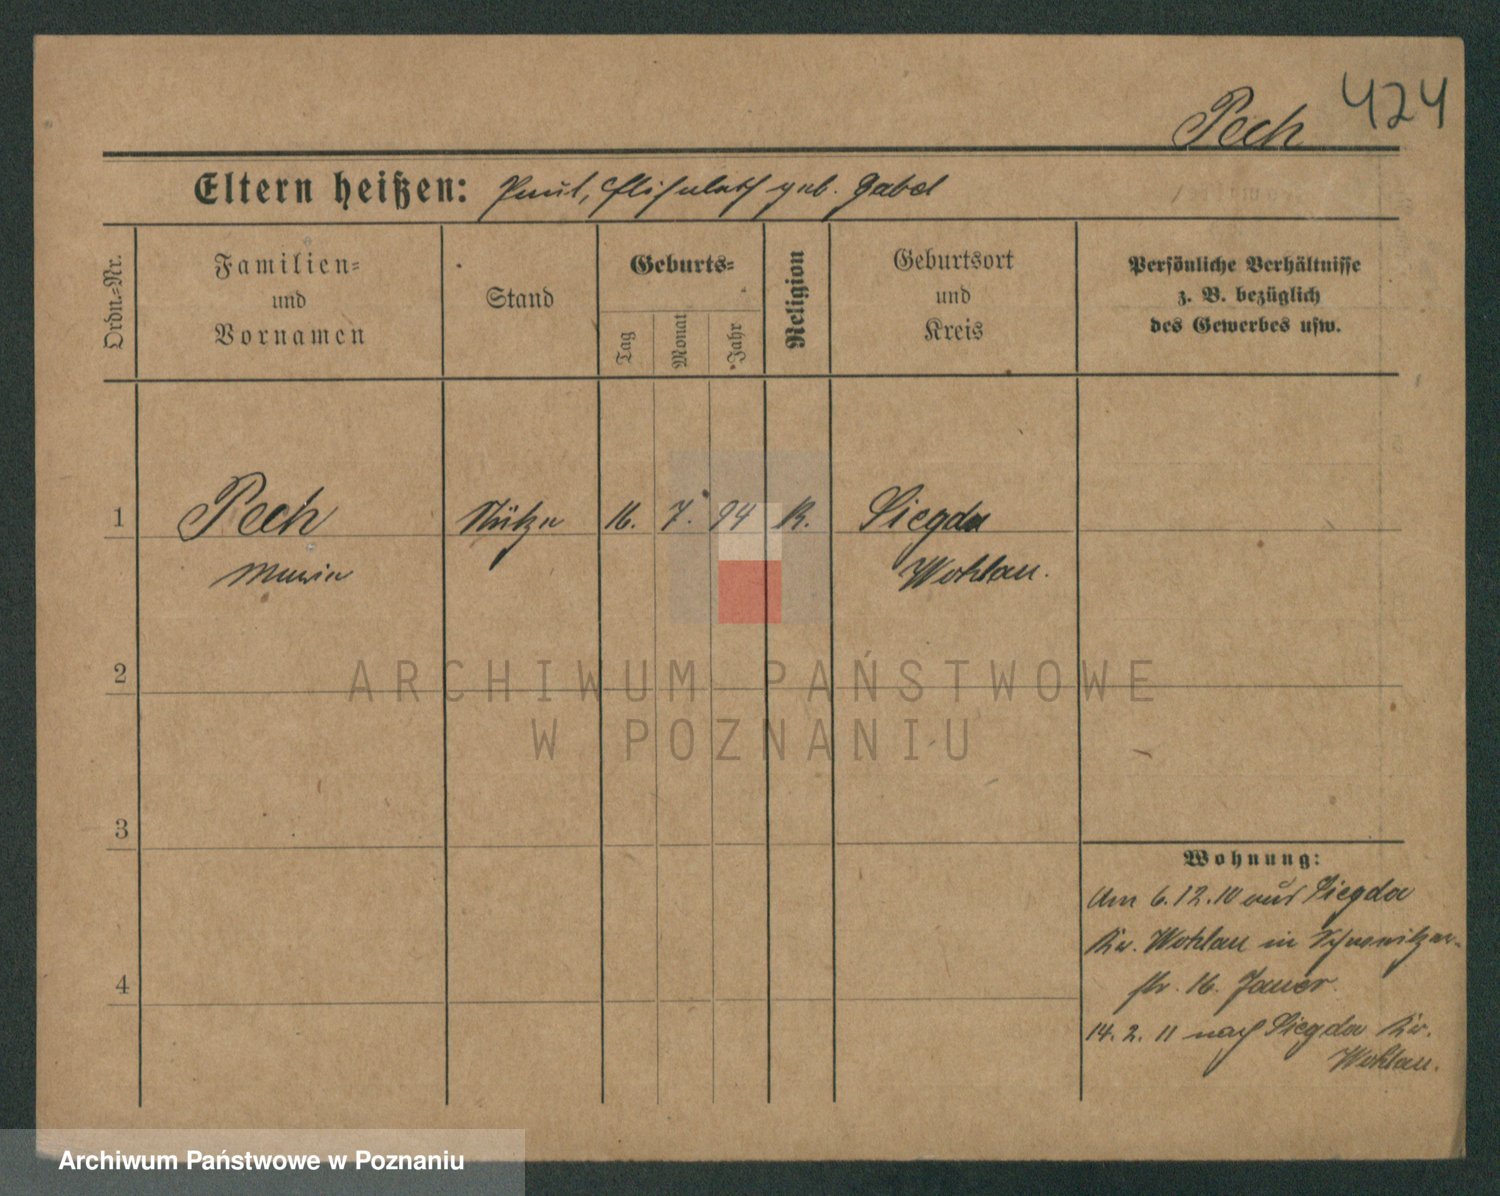 424
Pech
Eltern heißen: Paul, Elisabeth geb. Gabel
Ordn.-Nr.
Familien-
und
Vornamen
Stand
Geburts-
Tag
Monat
Jahr
Religion
Geburtsort
und
Kreis
Persönliche Verhältnisse
z. B. bezüglich
des Gewerbes usw.
1 Pech Stütze 16. 7. 94 K. Siegda
Maria Wohlau.
2
3
4
Wohnung:
Am 6.12.10 aus Siegda
Kr. Wohlau in
str. 16. Jauer.
14. 2. 11 nach Siegda Kr.
Wohlau.
ARCHIWUM PAŃSTWOWE
W POZNANIU
Archiwum Państwowe w Poznaniu